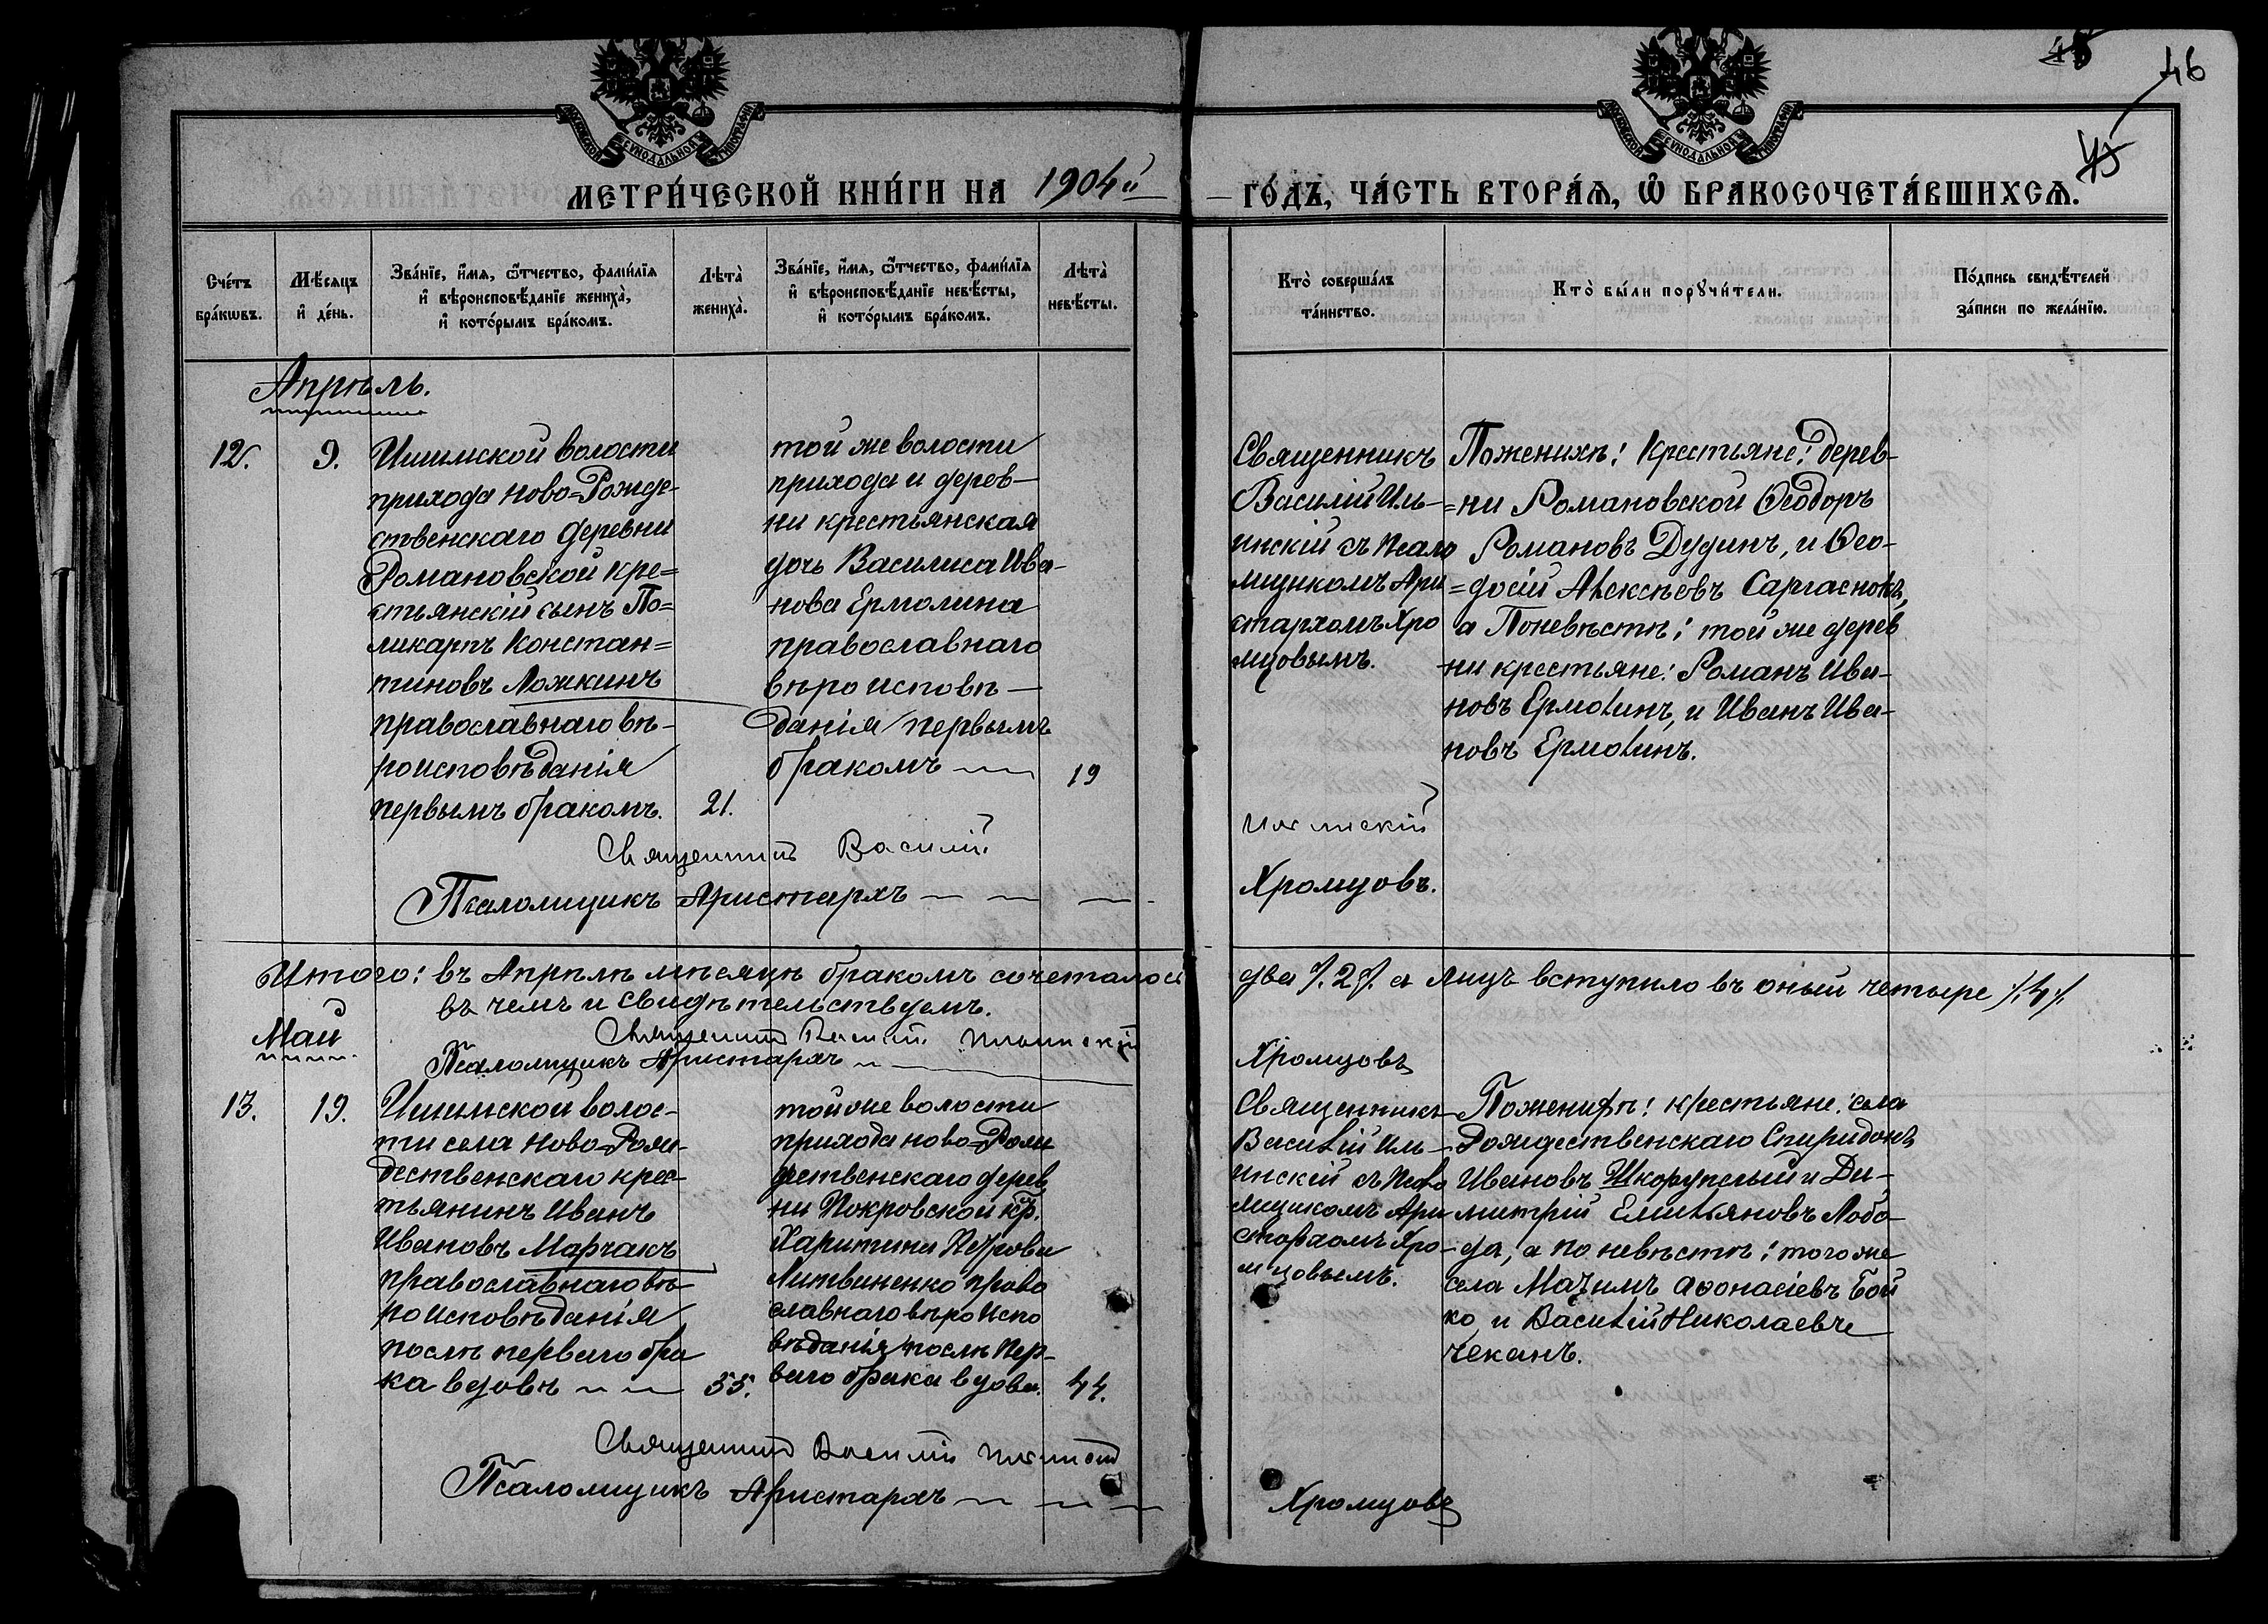 45 46
45
МЕТРИ́ЧЕСКОЙ КНИ́ГИ НА 1904й ГО́ДЪ, ЧА́СТЬ ВТОРА́Ѧ, Ѽ БРАКОСОЧЕТА́ВШИХСѦ.
Сче́тъ бра́кѡвъ.
Мѣ́сяцъ и҆ де́нь.
Зва́нїе, и҆́мя, ѻ҆́тчество, фами́лїя и҆ вѣроисповѣ́данїе жениха̀, и҆ кото́рымъ бра́комъ.
Лѣта̀ жениха̀.
Зва́нїе, и҆́мя, ѻ҆́тчество, фами́лїя и҆ вѣроисповѣ́данїе невѣ́сты, и҆ кото́рымъ бра́комъ.
Лѣта̀ невѣ́сты.
Кто̀ соверша́лъ та́инство.
Кто̀ бы́ли порꙋчи́тели.
По́дпись свидѣ́телей за́писи по жела́нїю.
Апрѣль.
12.
9.
Ишимской волости
прихода Ново=Рожде-
ственскаго деревни
Романовской кре=
стьянскій сынъ По=
ликарпъ Констан=
тиновъ Ложкинъ
православнаго вѣ-
роисповѣданія
первымъ бракомъ.
21.
той же волости
прихода и дерев-
ни крестьянская
дочь Василиса Ива-
нова Ермолина
православнаго
вѣроисповѣ-
данія первымъ
бракомъ
19
Священникъ
Василій Иль-
инскій съ Псало
мщикомъ Ари
стархомъ Хро
мцовымъ.
Поженихѣ: Крестьяне: дерев-
=ни Романовской Ѳеодоръ
Романовъ Дудинъ, и Ѳео-
=досій Алексѣевъ
а Поневѣстѣ: той же дерев
ни крестьяне: Романъ Ива-
новъ Ермолинъ, и Иванъ Ива-
новъ Ермолинъ.
Священникъ Василій Ильинскій
Псаломщикъ Аристархъ Хромцовъ.
Итого: въ Апрѣлѣ мѣсяцѣ бракомъ сочеталось два /.2/. а лицъ вступило въ оный четыре /.4/.
въ чемъ и свидѣтельствуемъ.
Священникъ Василій Ильинскій
Май
Псаломщикъ Аристархъ Хромцовъ
13.
19.
Ишимской волос-
ти села Ново-Рож-
дественскаго крес-
тьянинъ Иванъ
Ивановъ Марчакъ
православнаго вѣ-
роисповѣданія
послѣ перваго бра
ка вдовъ
55.
той же волости
прихода ново=Рож
дественскаго дерев
ни Покровской кр.
Харитина Петрова
Литвиненко право
славнаго вѣроиспо
вѣданія послѣ пер-
ваго брака вдова.
44.
Священникъ
Василій Иль-
инскій съ Псало
мщикомъ Ари
стархомъ Хро-
мцовымъ.
Поженихѣ: крестьяне: села
Рождественскаго Спиридонъ
Ивановъ Шкорупелый и Ди-
митрій Емильяновъ Лобо-
да, а по невѣстѣ: того же
села Максимъ Аѳонасіевъ Бой
ко и Василій Николаевъ
Чеканъ.
Священникъ Василій Ильинскій
Псаломщикъ Аристархъ Хромцовъ